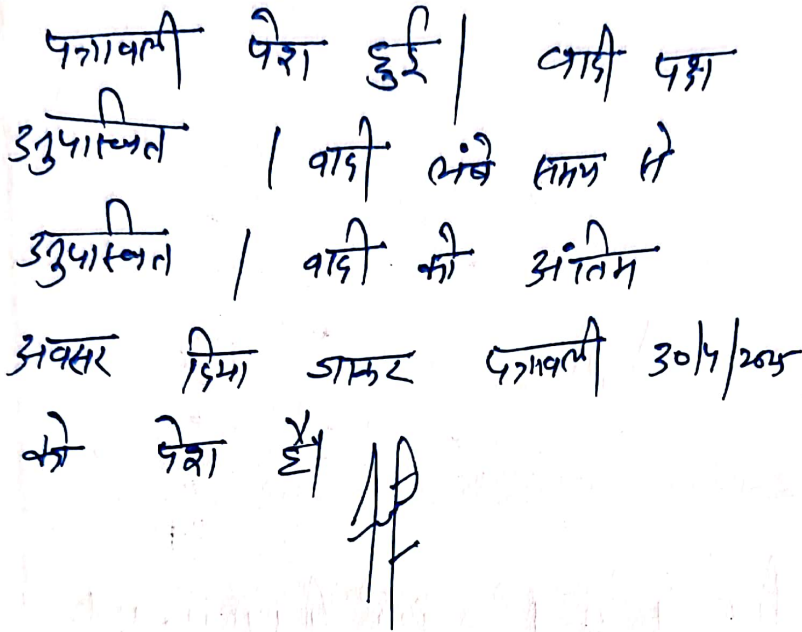 पत्रावली पेश हुई। वादी पक्ष
अनुपस्थित । वादी लंबे समय से
अनुपस्थित । वादी को अंतिम
अवसर दिया जाकर पत्रावली 30/4/2025
को पेश हो।